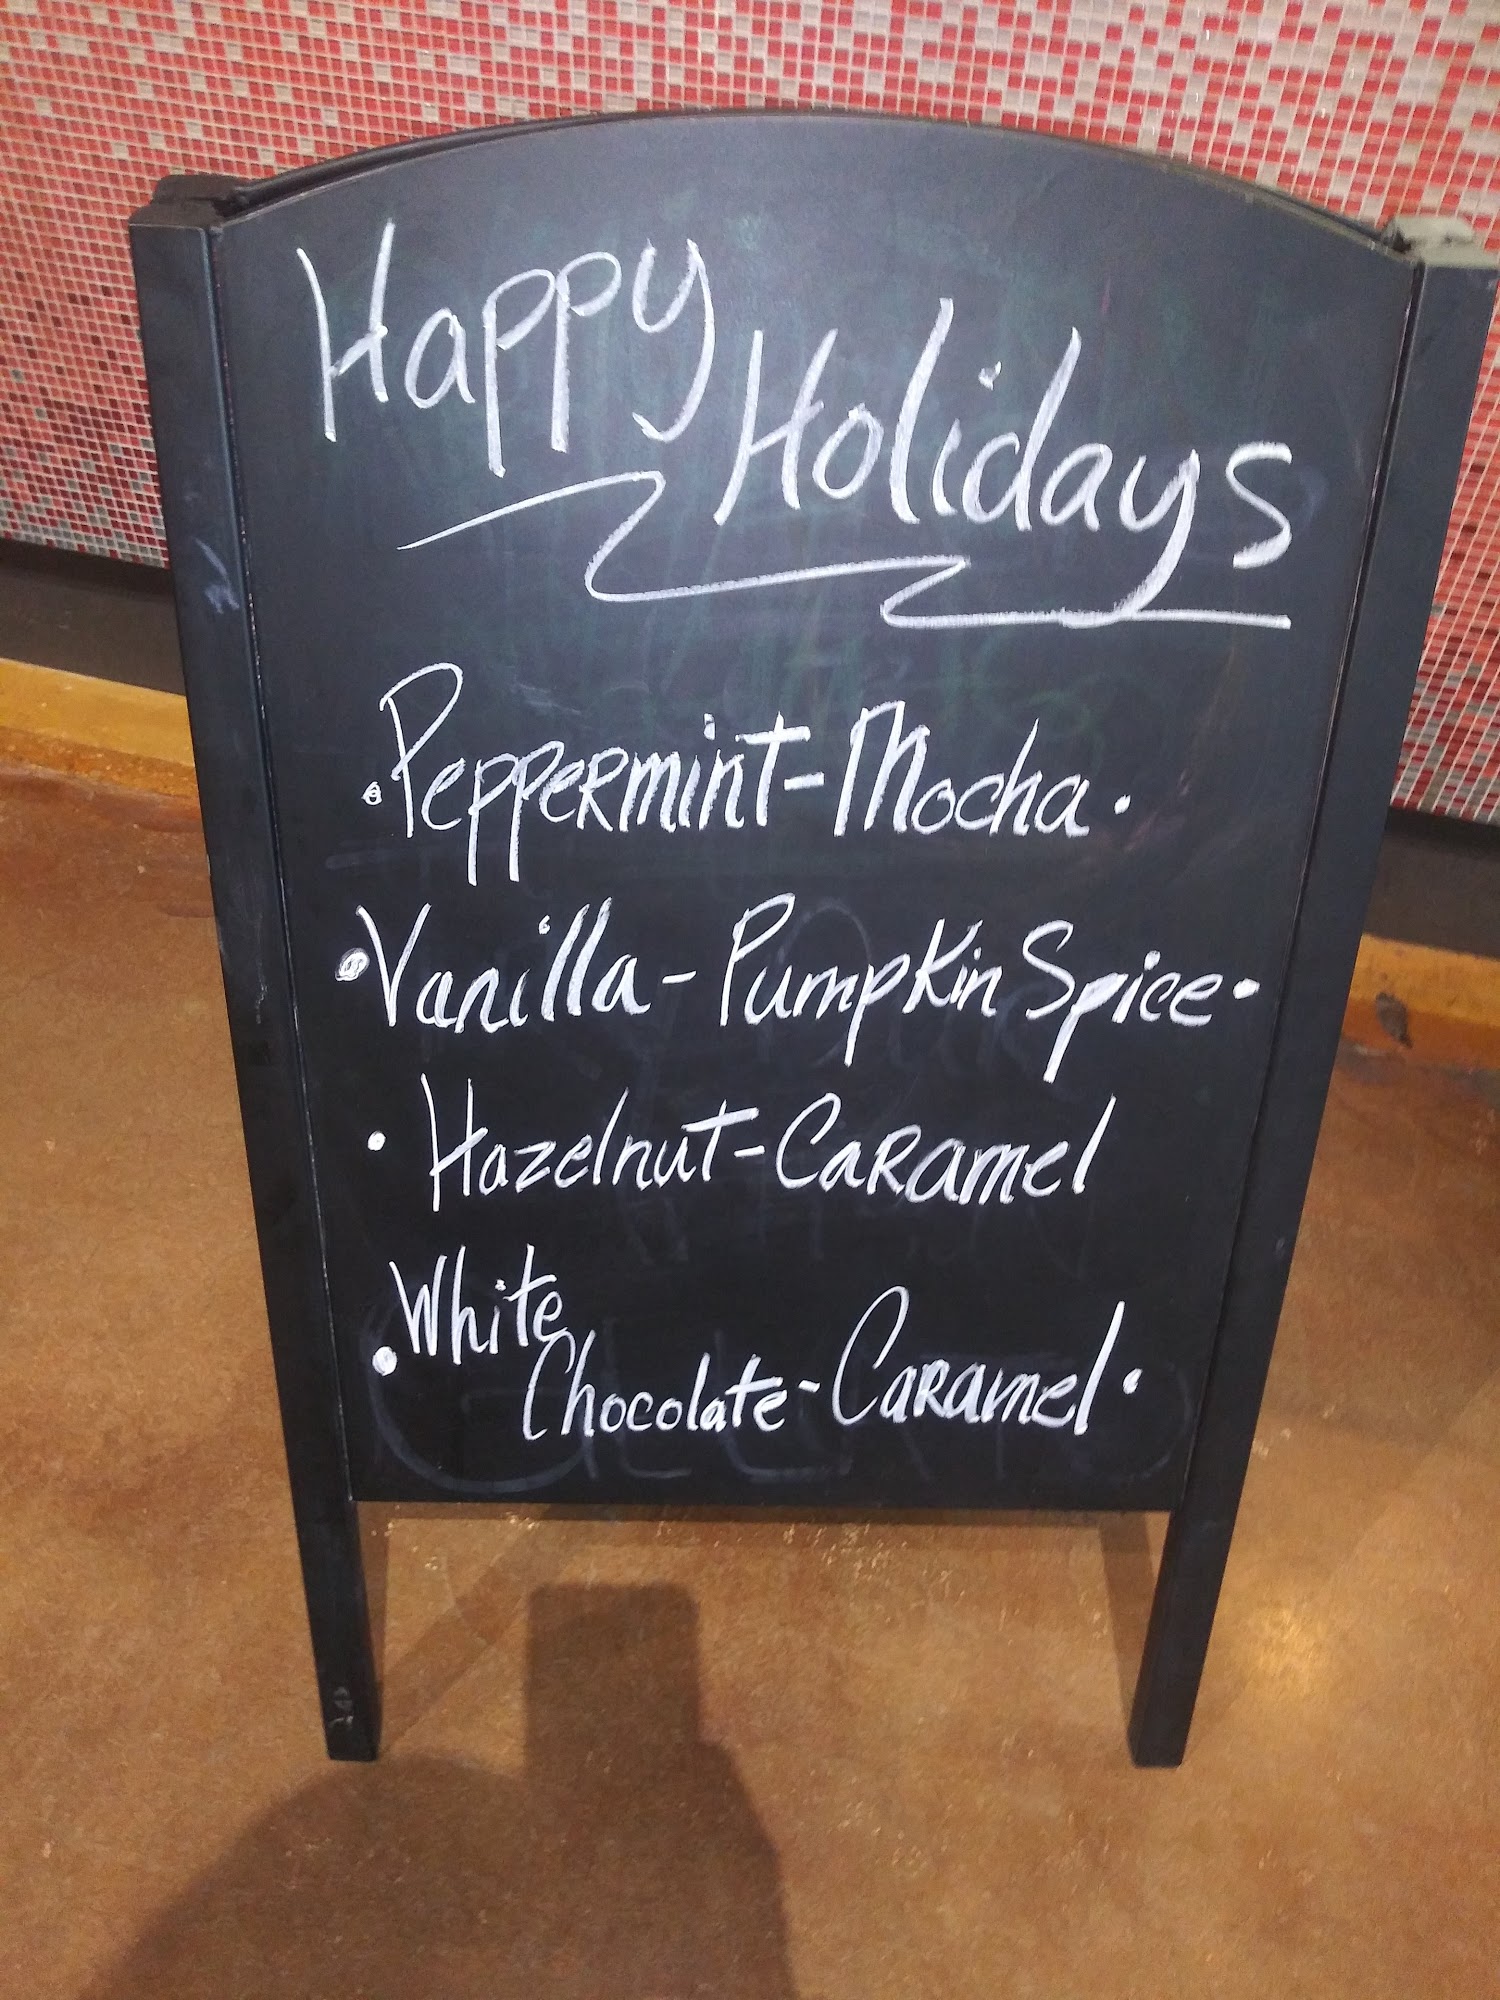 Happy Holidays
• Peppermint-Mocha •
• Vanilla-Pumpkin Spice •
• Hazelnut-Caramel
• White
Chocolate-Caramel •